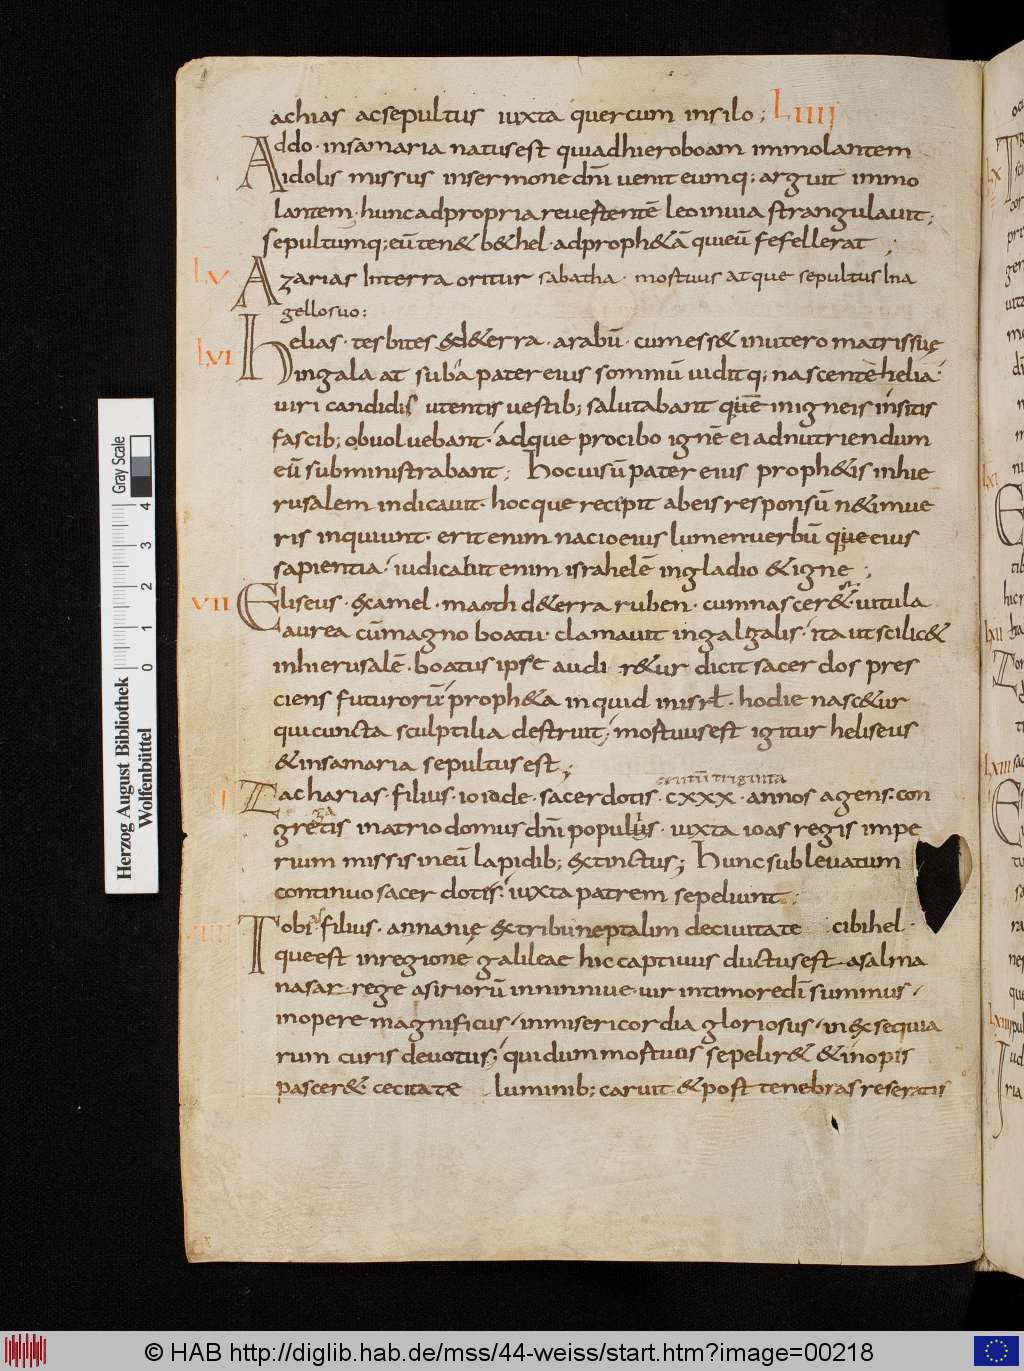 achias acsepultus iuxta quercum insilo; LIIII
Addo· insamaria natusest quiadhieroboam immolantem
idolis missus insermone dn̄i uenit eumq; arguit immo
lantem· huncadpropria reuertentē leo inuia strangulauit;
sepultumq; eū ten& b&hel· adproph&ā quieū fefellerat ;
LV Azarias Interra oritur sabatha· mortuus atque sepultus Ina
gellosuo:
LVI Helias· tesbites &d&erra· arabū· cumess& inutero matrissuę
ingala at subͣa pater eius somniū uidit q; nascente helia
uiri candidis utentis uestib; salutabant quē inigneis insitis
fascib; obuoluebant· adque procibo ignē ei adnutriendum
eū subministrabant; Hocuisū pater eius proph&is inhie
rusalem indicauit· hocque recipit abeis responsū n&imue
ris inquiunt· erit enim nacio eius lumen uerbū que eius
sapientia· iudicabit enim israhelē ingladio & igne ;
VII Eliseus· &camel· maoth d&erra ruben· cumnascer&· uitula
aurea cūmagno boatu· clamauit ingalgalis· ita ut scilic&
inhierusalē· boatus ipse audi r&ur dicit sacerdos pres
ciens futurorū· proph&a inquid inisrl̄· hodie nasc&ur
qui cuncta sculptilia destruit; mortuusest igitur heliseus
&insamaria sepultusest;
centū triginta
Zacharias· filius· ioiade· sacerdotis· cxxx· annos agens· con
gretis inatrio domus dn̄i populus· iuxta ioas regis impe
rium missis ineū lapidib; &tinctus; Hunc subleuatum
continuo sacerdotis· iuxta patrem sepeliunt ;
VIIII Tobias· filius· annanię &tribu neptalim deciuitate cibihel·
que est inregione galileae hic captiuus ductusest asalma
nasar rege asiriorū inniniue uir intimoredī summus·
inopere magnificus· inmisericordia gloriosus· in&sequia
rum curis deuotus; quidum mortuos sepelir& & inopis
pascer& cecitate luminib; caruit & post tenebras reseratis
Herzog August Bibliothek
Wolfenbüttel
0 1 2 3 4
Gray Scale
© HAB http://diglib.hab.de/mss/44-weiss/start.htm?image=00218